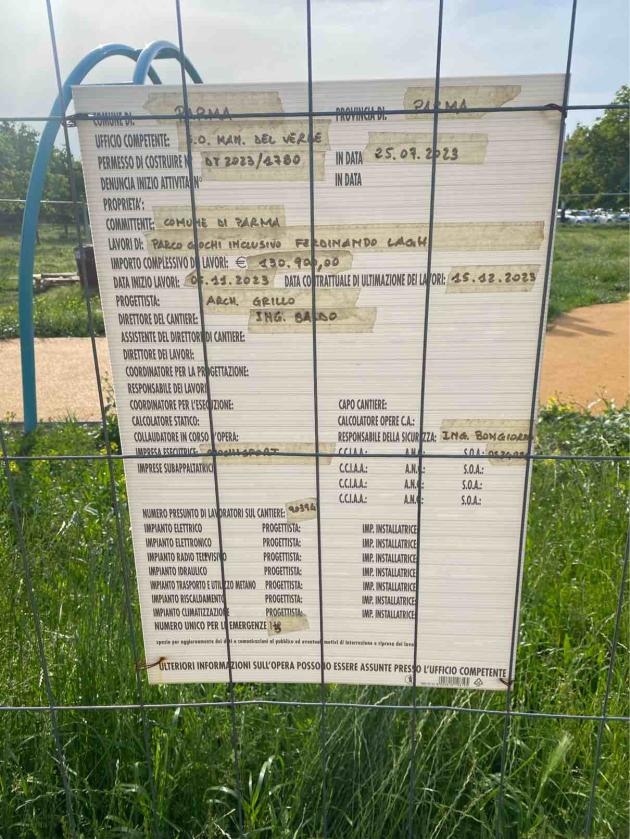 COMUNE DI: PARMA PROVINCIA DI: PARMA
UFFICIO COMPETENTE: S.O. MAN. DEL VERDE
PERMESSO DI COSTRUIRE N° DT 2023/1780 IN DATA 25.07.2023
DENUNCIA INIZIO ATTIVITA' N° IN DATA
PROPRIETA':
COMMITTENTE: COMUNE DI PARMA
LAVORI DI: PARCO GIOCHI INCLUSIVO FERDINANDO
IMPORTO COMPLESSIVO DEI LAVORI: € 130.900,00
DATA INIZIO LAVORI: 11.2023 DATA CONTRATTUALE DI ULTIMAZIONE DEI LAVORI: 15.12.2023
PROGETTISTA: ARCH. GRILLO
DIRETTORE DEL CANTIERE: ING. BARDO
ASSISTENTE DEL DIRETTORE DI CANTIERE:
DIRETTORE DEI LAVORI:
COORDINATORE PER LA PROGETTAZIONE:
RESPONSABILE DEI LAVORI:
COORDINATORE PER L'ESECUZIONE: CAPO CANTIERE:
CALCOLATORE STATICO: CALCOLATORE OPERE C.A.:
COLLAUDATORE IN CORSO D'OPERA: RESPONSABILE DELLA SICUREZZA: ING. BONGIORNI
IMPRESA ESECUTRICE: C.C.I.A.A.: A.N.C.: S.O.A.:
IMPRESE SUBAPPALTATRICI: C.C.I.A.A.: A.N.C.: S.O.A.:
C.C.I.A.A.: A.N.C.: S.O.A.:
C.C.I.A.A.: A.N.C.: S.O.A.:
NUMERO PRESUNTO DI LAVORATORI SUL CANTIERE:
IMPIANTO ELETTRICO PROGETTISTA: IMP. INSTALLATRICE:
IMPIANTO ELETTRONICO PROGETTISTA: IMP. INSTALLATRICE:
IMPIANTO RADIO TELEVISIVO PROGETTISTA: IMP. INSTALLATRICE:
IMPIANTO IDRAULICO PROGETTISTA: IMP. INSTALLATRICE:
IMPIANTO TRASPORTO E UTILIZZO METANO PROGETTISTA: IMP. INSTALLATRICE:
IMPIANTO RISCALDAMENTO PROGETTISTA: IMP. INSTALLATRICE:
IMPIANTO CLIMATIZZAZIONE PROGETTISTA: IMP. INSTALLATRICE:
NUMERO UNICO PER LE EMERGENZE
spazio per aggiornamento dei dati e comunicazioni al pubblico ed eventuali motivi di interruzione e ripresa dei lavori
ULTERIORI INFORMAZIONI SULL'OPERA POSSONO ESSERE ASSUNTE PRESSO L'UFFICIO COMPETENTE